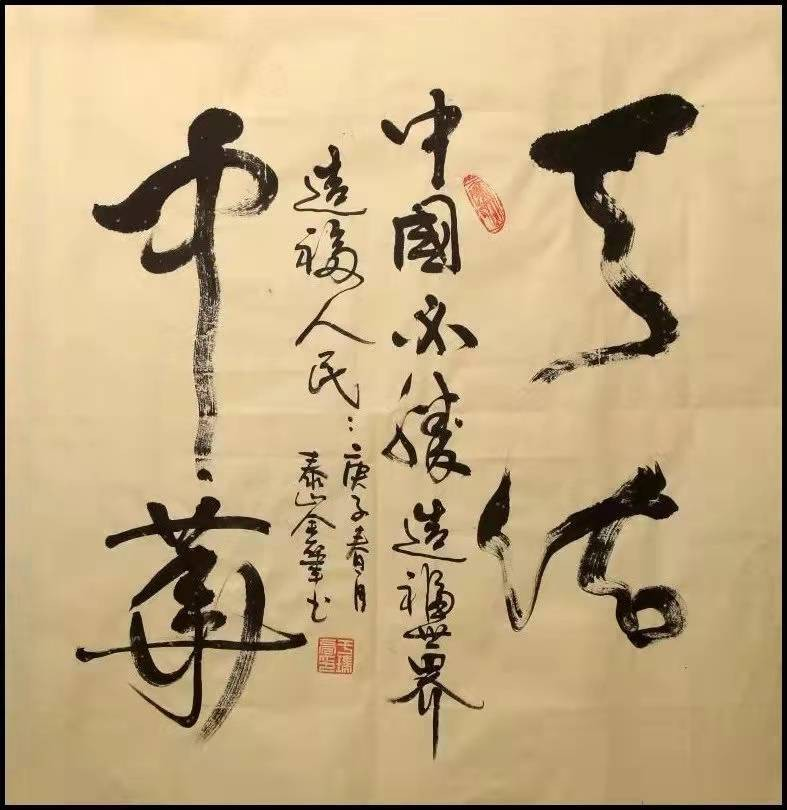 天佑
中華
中國必勝造福世界
造福人民
庚子春月
泰山金笔书